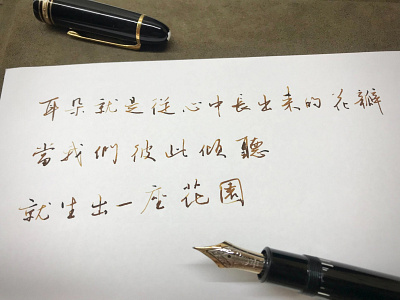 耳朵就是從心中長出來的花瓣
當我們彼此傾聽
就生出一座花園